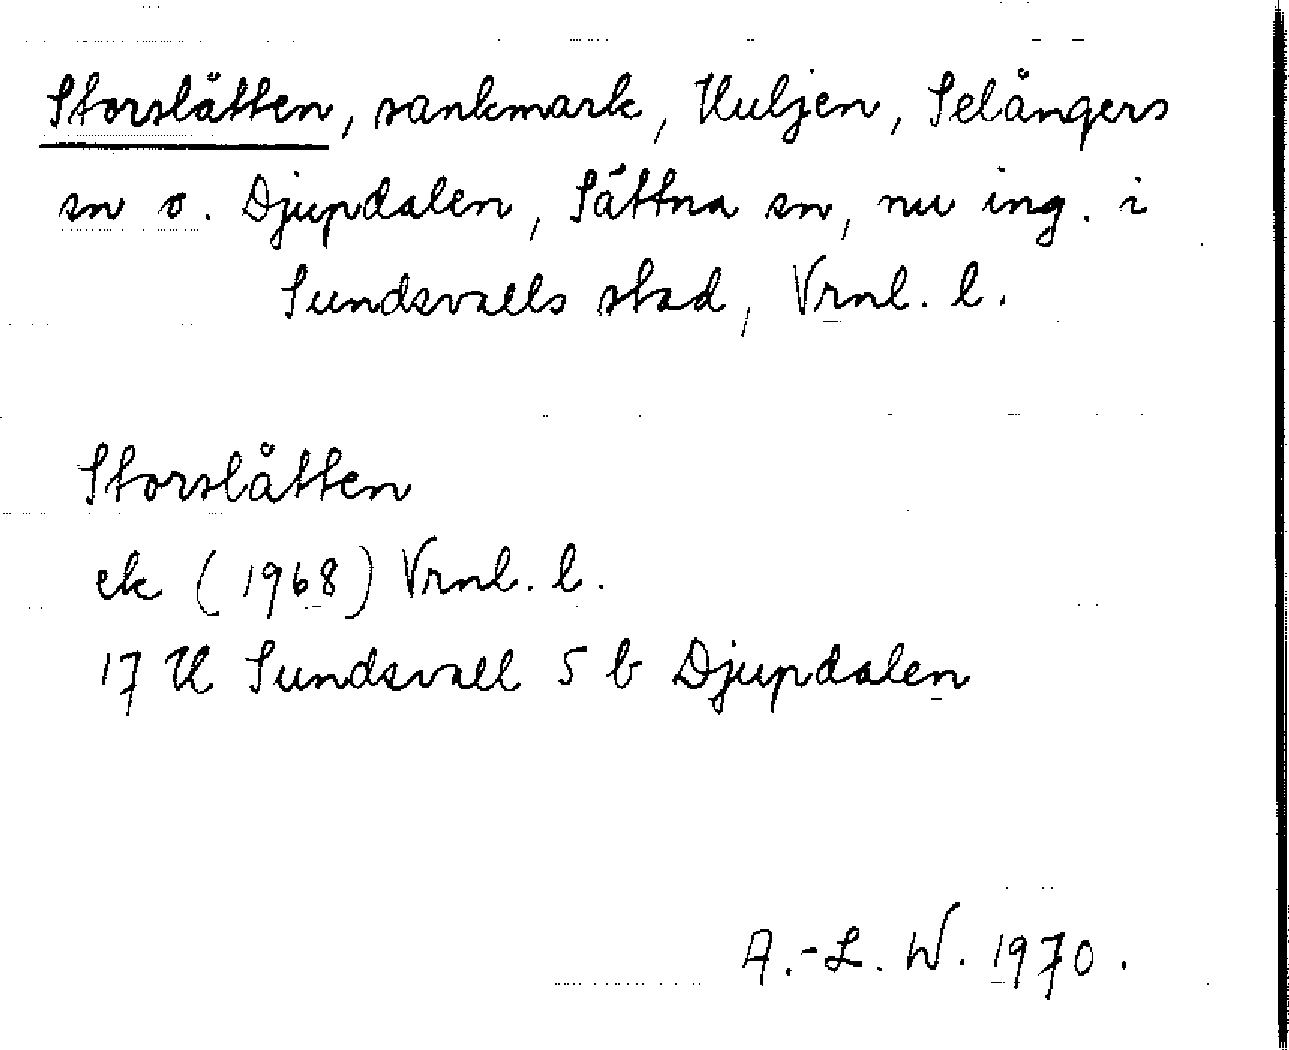 Storslåtten, sankmark, Kuljen, Selångers
sn o. Djupdalen, Sättna sn, nu ing. i
Sundsvalls stad, Vrnl. l.
Storslåtten
ek (1968) Vrnl. l.
17 H Sundsvall 5 b Djupdalen
A.-L. W. 1970.